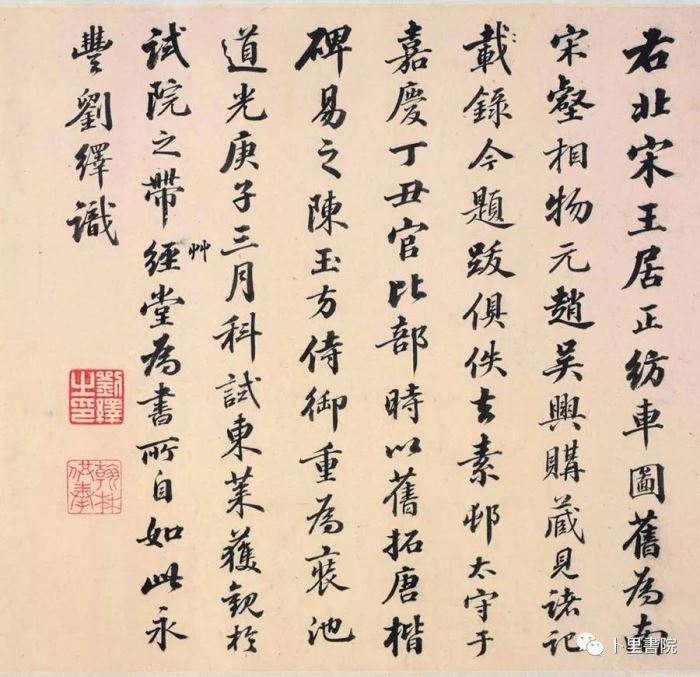 右北宋王居正紡車圖舊為南
宋壑相物元趙吳興購蔵見諸記
載錄今題跋俱佚素邨太守于
嘉慶丁丑官比部時以舊拓唐楷
碑易之陳玉方侍御重為裝池
道光庚子三月科試東萊獲觀於
試院之帶經艸堂為書所自如此永
豐劉繹識
劉繹之印
翰林供奉
卜里書院